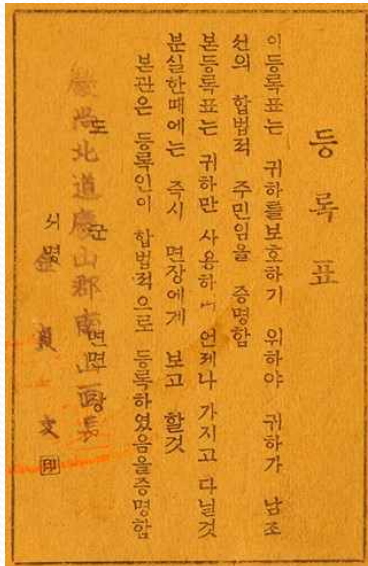 등록표
이등록표는 귀하를보호하기 위하야 귀하가 남조
선의 합법적 주민임을 증명함
본등록표는 귀하만 사용하며 언제나 가지고 다닐것
분실한때에는 즉시 면장에게 보고 할것
본관은 등록인이 합법적으로 등록하였음을증명함
도 군 면면장
慶尚北道慶山郡南山面長
서명 金 文 印